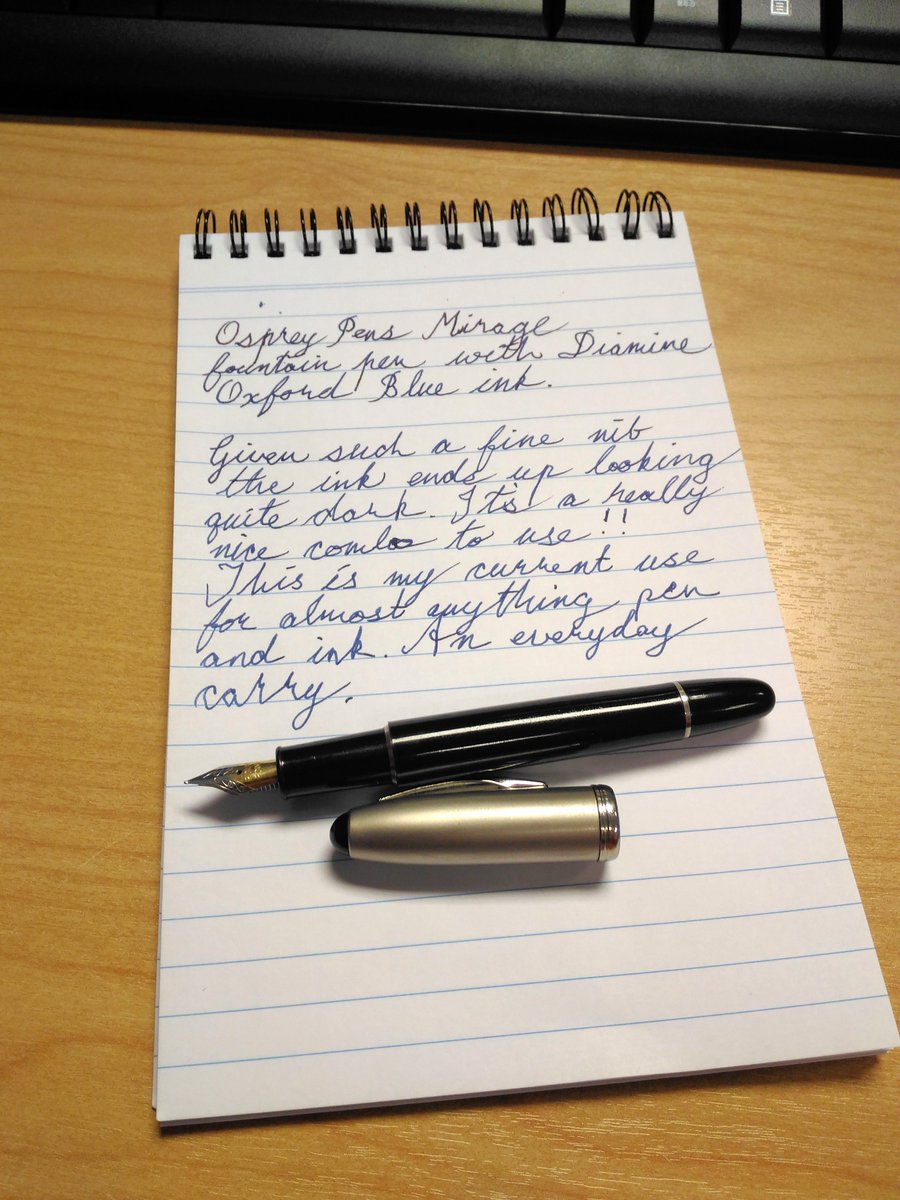 Osprey Pens Mirage
fountain pen with Diamine
Oxford Blue ink.
Given such a fine nib
the ink ends up looking
quite dark. It's a really
nice combo to use!!
This is my current use
for almost anything pen
and ink. An everyday
carry.